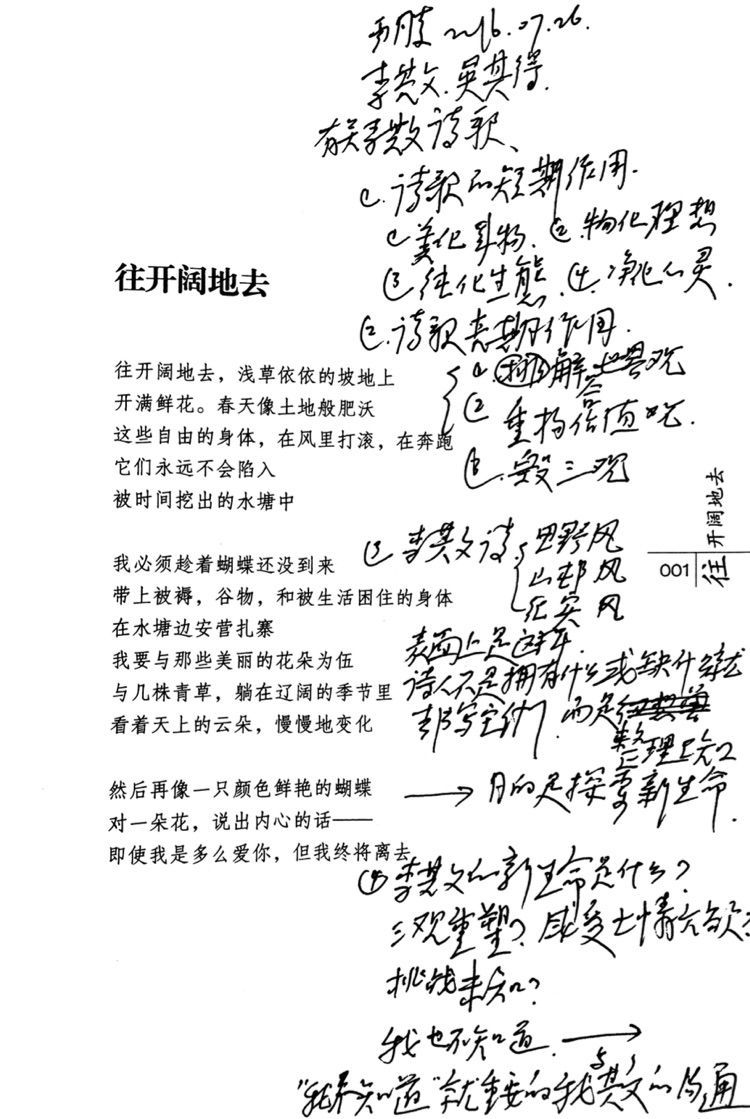 2016.07.26.
有关李散诗歌、
1.诗歌的短期作用.
②.物化理想
③纯化生态.④.净化心灵.
2.诗歌长期作用.
解世界观
②重构价值观.
③.毁三观
往开阔地去
往开阔地去，浅草依依的坡地上
开满鲜花。春天像土地般肥沃
这些自由的身体，在风里打滚，在奔跑
它们永远不会陷入
被时间挖出的水塘中
我必须趁着蝴蝶还没到来
带上被褥，谷物，和被生活困住的身体
在水塘边安营扎寨
我要与那些美丽的花朵为伍
与几株青草，躺在辽阔的季节里
看着天上的云朵，慢慢地变化
然后再像一只颜色鲜艳的蝴蝶
对一朵花，说出内心的话——
即使我是多么爱你，但我终将离去
001
往开阔地去
田野风
山村风
表面上是这样.
诗人不是拥有什么或缺什么就
而是
→目的是探索新生命.
的新生命是什么？
三观重塑？感受七情六欲
挑战未知？
我也不知道.→
"我不知道"就重要的我
的沟通